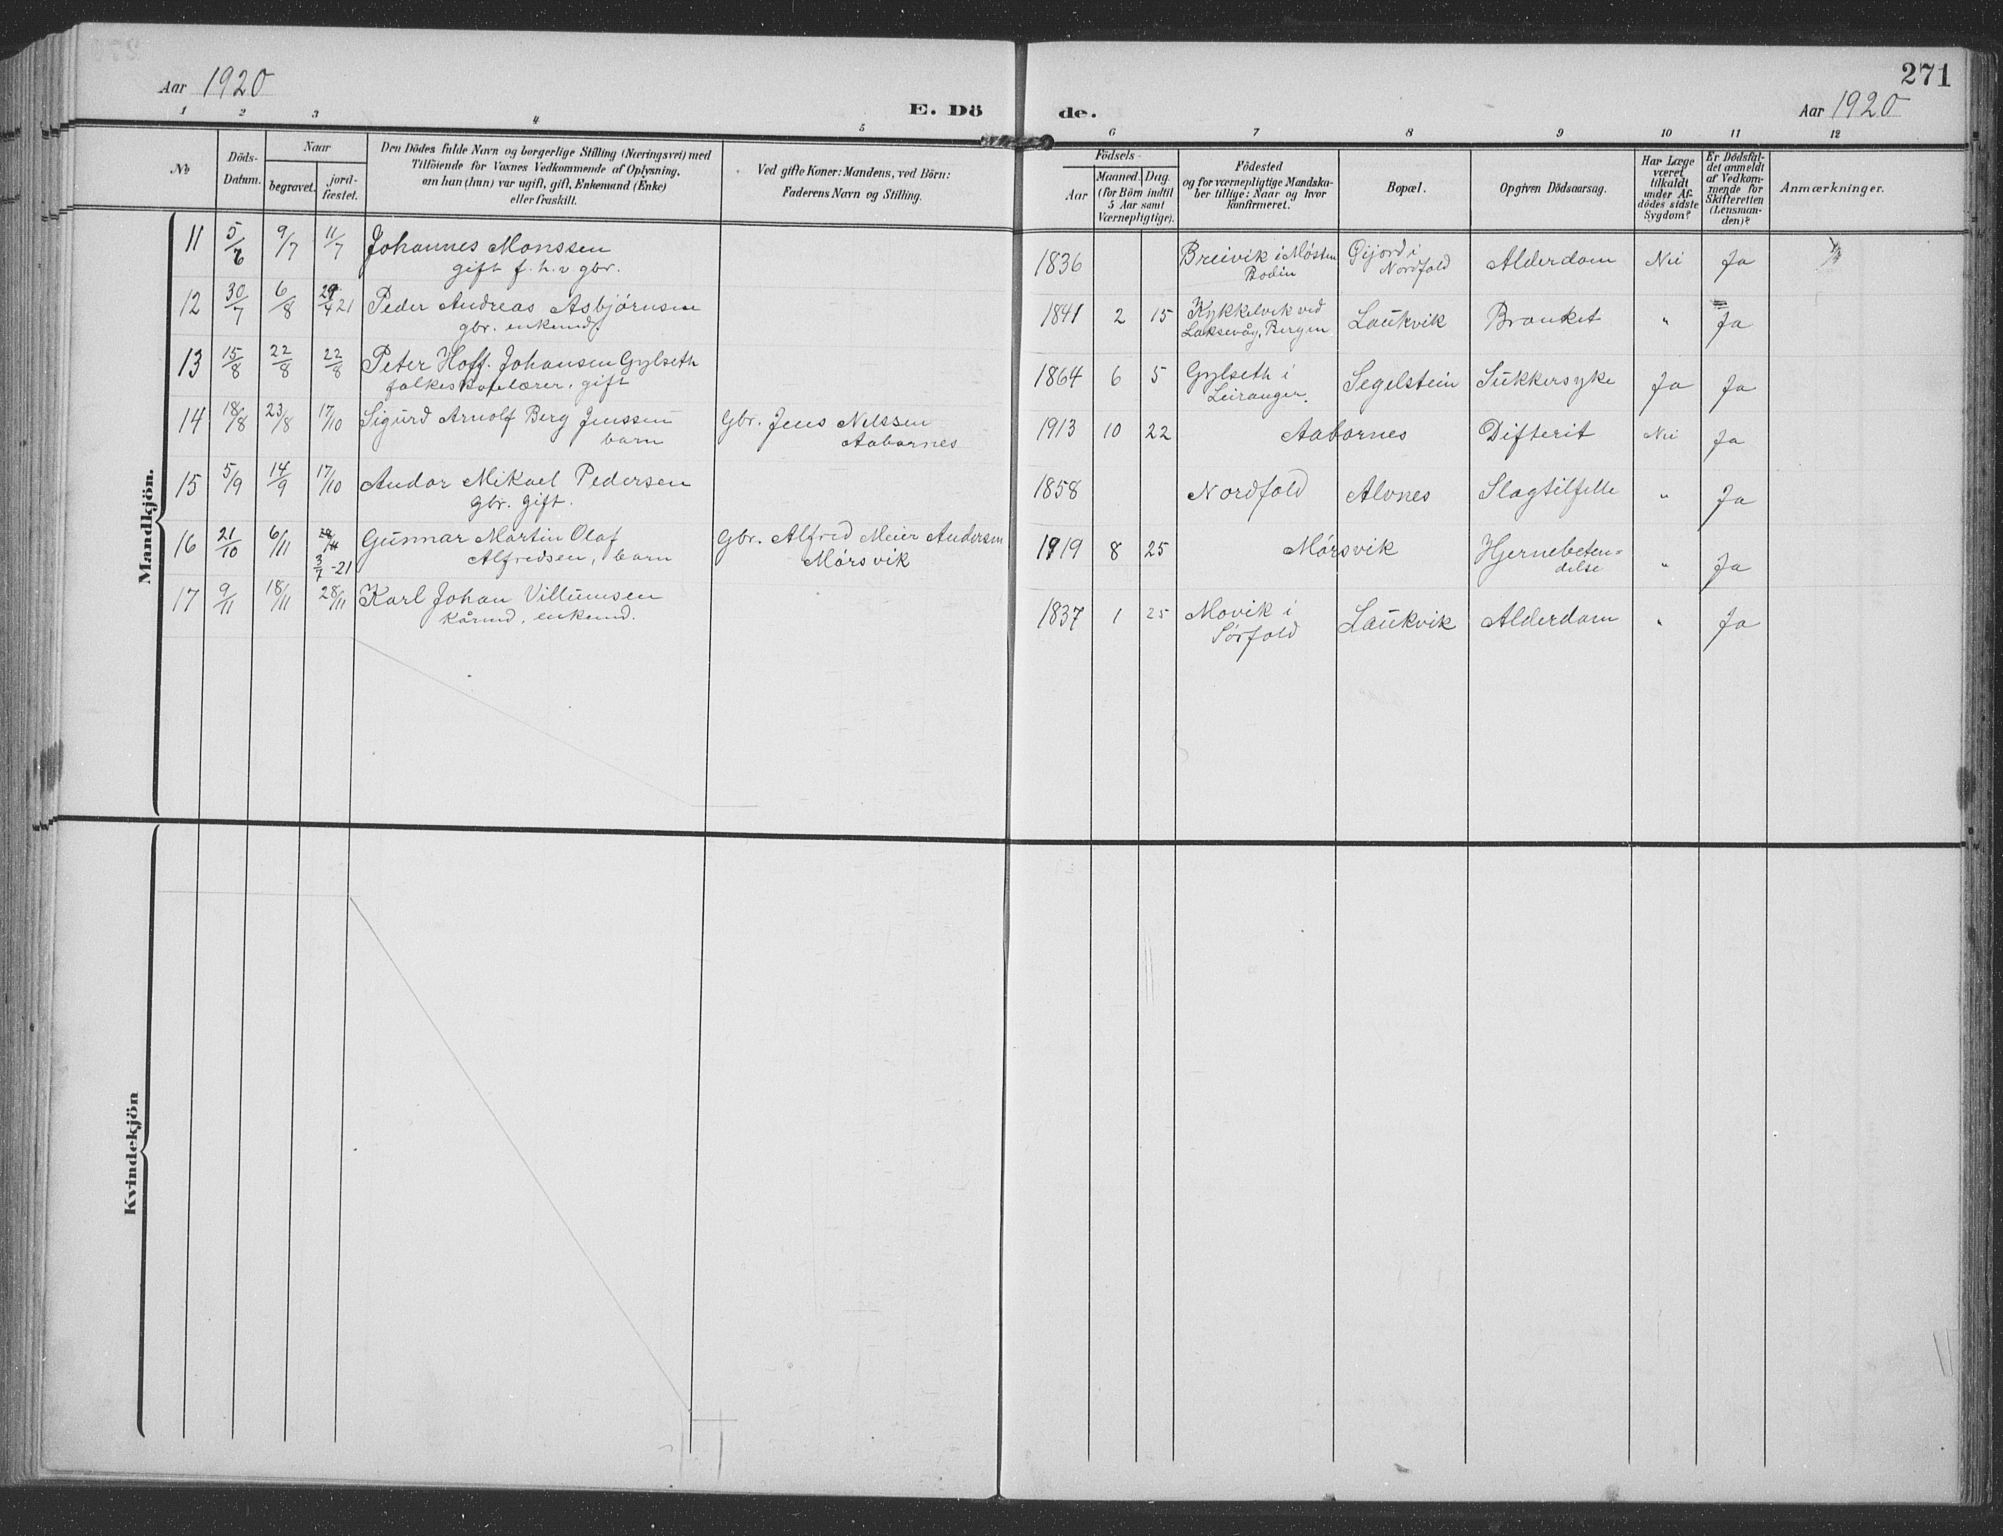 271
Aar 1920
E. Dö de.
Aar 1920
1 2 3 4 5 6 7 8 9 10 11 12
No
Döds-Datum.
Naar
begravet.
jord-fæstet.
Den Dödes fulde Navn og borgerlige Stilling (Næringsvei) med
Tilföiende for Voxnes Vedkommende af Oplysning,
om han (hun) var ugift, gift, Enkemand (Enke)
eller fraskilt.
Ved gifte Koner: Mandens, ved Börn:
Faderens Navn og Stilling.
Födsels-
Aar
Maaned. Dag.
(for Börn indtil
5 Aar samt
Værnepligtige).
Födested
og for værnepligtige Mandska-
ber tillige: Naar og hvor
konfirmeret.
Bopæl.
Opgiven Dödsaarsag.
Har Læge
været
tilkaldt
under Af-
dödes sidste
Sygdom?
Er Dödsfal-
det anmeldt
af Vedkom-
mende for
Skifteretten
(Lensman-
den)?
Anmærkninger.
Mandkjön.
11 5/6 9/7 11/7 Johannes Monssen 1836 Breivik i Møsten Gijord i Alderdom Nei Ja
gift f. h. v gbr. Bodin Nordfold
12 30/7 6/8 29/4 21 Peder Andreas Asbjørnsen 1841 2 15 Kykkelvik ved Laukvik Brauket " Ja
gbr. enkemd. Laksevåg, Bergen
13 15/8 22/8 22/8 Peter Hoff. Johansen Gylseth 1864 6 5 Gylseth i Segelstein Sukkersyke Ja Ja
folkeskolelærer, gift Leiranger.
14 18/8 23/8 17/10 Sigurd Arnolf Berg Jenssen Gbr. Jens Nilssen 1913 10 22 Aabornes Difterit Nei Ja
barn Aabornes
15 5/9 14/9 17/10 Andor Mikael Pedersen 1858 Nordfold Alvnes Slagtilfelle " Ja
gbr. gift.
16 21/10 6/11 Gunnar Martin Olaf Gbr. Alfred Meier Andersen 1919 8 25 Mørsvik Hjernebeten-
3/7-21 Alfredsen, barn Mørsvik delse " Ja
17 9/11 18/11 28/11 Karl Johan Villumsen 1837 1 25 Movik i Laukvik Alderdom " Ja
kårmd, enkemd. Sørfold
Kvindekjön